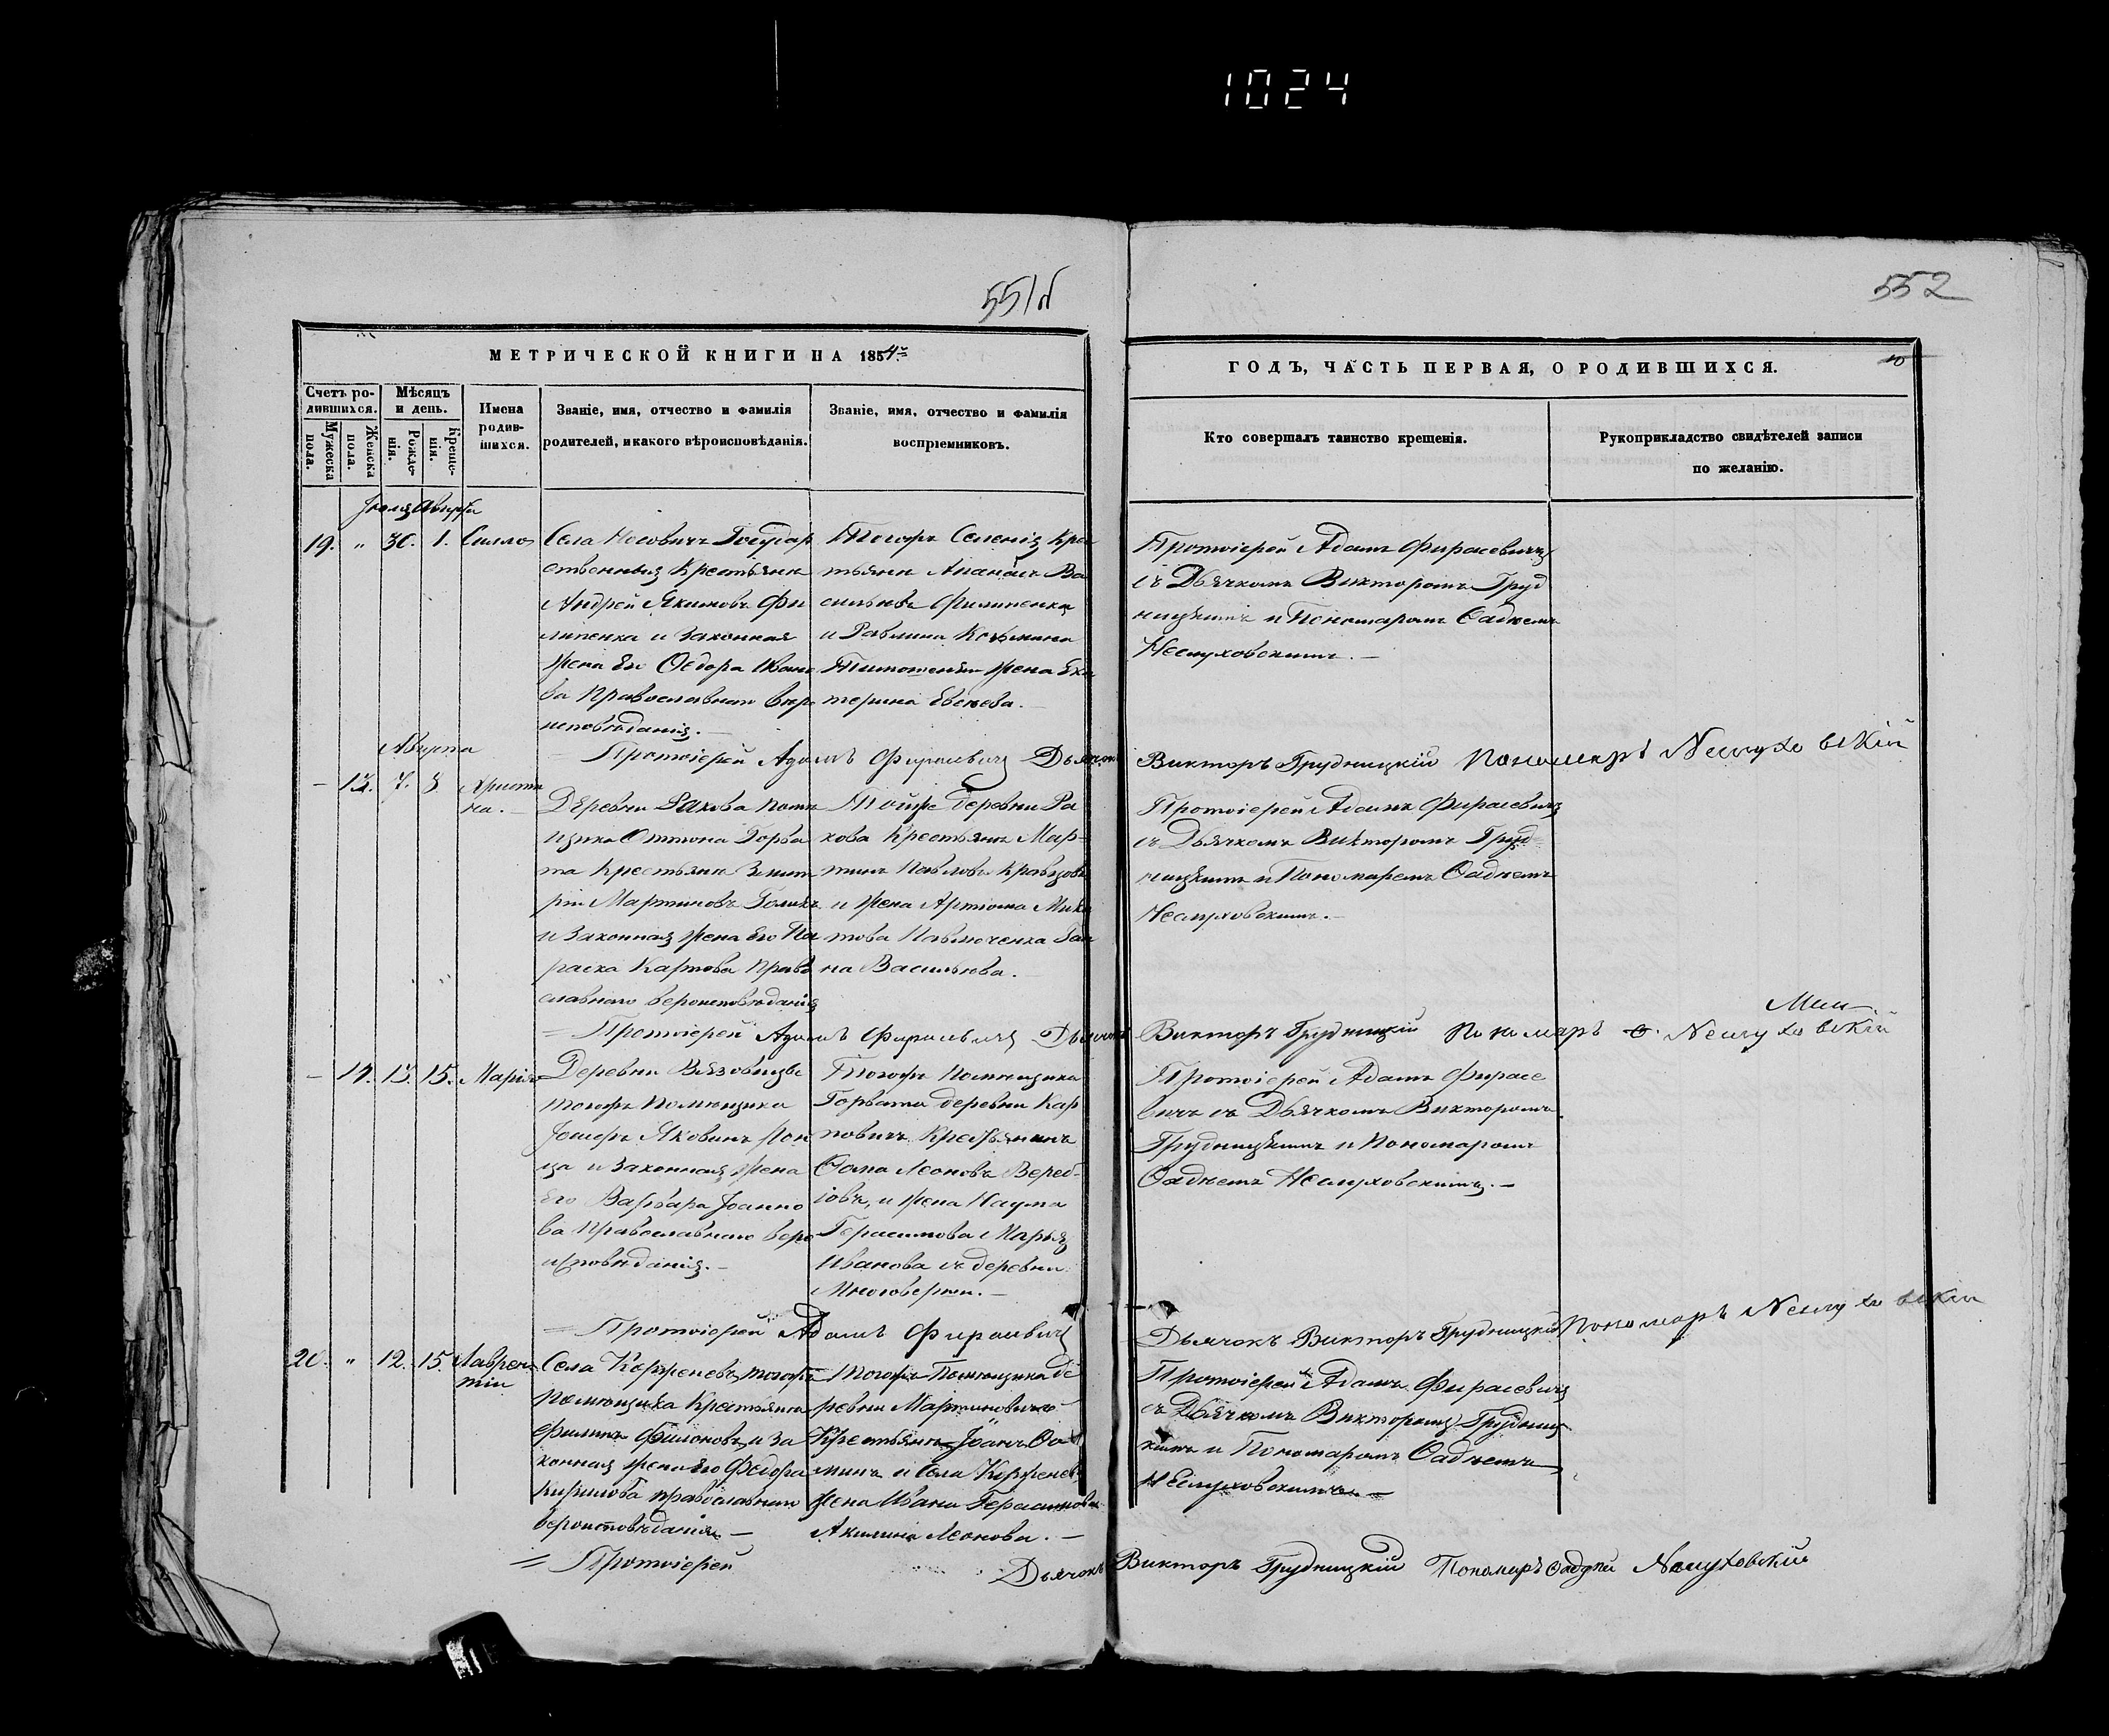 1024
551об
552
МЕТРИЧЕСКОЙ КНИГИ НА 1854й
Счетъ ро-
дившихся.
Мужеска
пола.
Женска
пола.
Мѣсяцъ
и день.
Рожде-
нія.
Креще-
нія.
Имена
родив-
шихся.
Званіе, имя, отчество и фамилія
родителей, и какого вѣроисповѣданія.
Званіе, имя, отчество и фамилія
воспріемниковъ.
ГОДЪ, ЧАСТЬ ПЕРВАЯ, О РОДИВШИХСЯ.
10
Кто совершалъ таинство крещенія.
Рукоприкладство свидѣтелей записи
по желанію.
Іюля Августа
19. " 30. 1.
Села Носовичъ Государ
ственныя Крестьяне
Андрей Якимовъ Фи
липенка и Законная
Жена Его Ѳедора Ивано
ва Православнаго веро
исповѣданія.—
Тогожъ Селенія Кре
тьянин Апанасъ Ва
сильевъ Филипенка
и Павлина Козмина
Тимошенки жена Ека
терина Евсѣева.—
Протоіерей Адамъ Фирасевичъ
съ Дьячкомъ Викторомъ Груд
ницкимъ и Пономаромъ Фаддеемъ
Неслуховскимъ.—
Протоіерей Адамъ Фирасевичъ Дьячокъ Викторъ Грудницкій Пономаръ Неслуховскій
Августа
— 13. 7. 8. Христи
на.—
Деревни Рахова поме
щика Оттона Горва
та Крестьяне Змит
рій Мартиновъ Голикъ
и Законная Жена Его Па
раска Карпова Право
славнаго вероисповѣданія
Тойже деревни Ра
хова Крестьянъ Мар-
тинъ Павловъ Кравцовъ
и Жена Артюма Мики
това Павлюченка Ган
на Васильева.
Протоіерей Адамъ Фирасевичъ
съ Дьячкомъ Викторомъ Груд
ницкимъ и Пономаремъ Фаддеемъ
Неслуховскимъ.—
Протоіерей Адамъ Фирасевичъ Дьячокъ Викторъ Грудницкій Пономаръ Ѳ. Неслуховскій
— 14. 13. 15. Марія
Деревни Вязовицы
тогожъ Помещика
и Законная жена
Его Варвара Іоанно
ва Православнаго веро
исповѣданія.—
Тогожъ Помещика
Горвата деревни Кар
повичъ Крестьянинъ
Ѳома Леоновъ
и жена Наума
Герасимова Марья
Иванова съ деревни
Протоіерей Адамъ Фирасе
вичъ съ Дьячкомъ Викторомъ
Грудницкимъ и Пономаромъ
Фаддеемъ Неслуховскимъ.—
Протоіерей Адамъ Фирасевичъ
Дьячокъ Викторъ Грудницкій Пономаръ Неслуховскій
20. " 12. 15. Лаврен
тій
Села тогожъ
помещика Крестьяне
Филипъ Филоновъ и За
конная жена Его Федора
Кирилова православнаго
вероисповѣданія.—
Тогожъ Помещика де
ревни Мартиновичъ
Крестьянъ Іоанъ Ѳо
минъ и Села
жена Ивана Герасимова
Акилина Леонова.—
Протоіерей Адамъ Фирасевичъ
съ Дьячкомъ Викторомъ Грудниц
кимъ и Пономаромъ Фаддеемъ
Неслуховскимъ.—
Протоіерей
Дьячокъ Викторъ Грудницкій Пономаръ Фаддей Неслуховскій